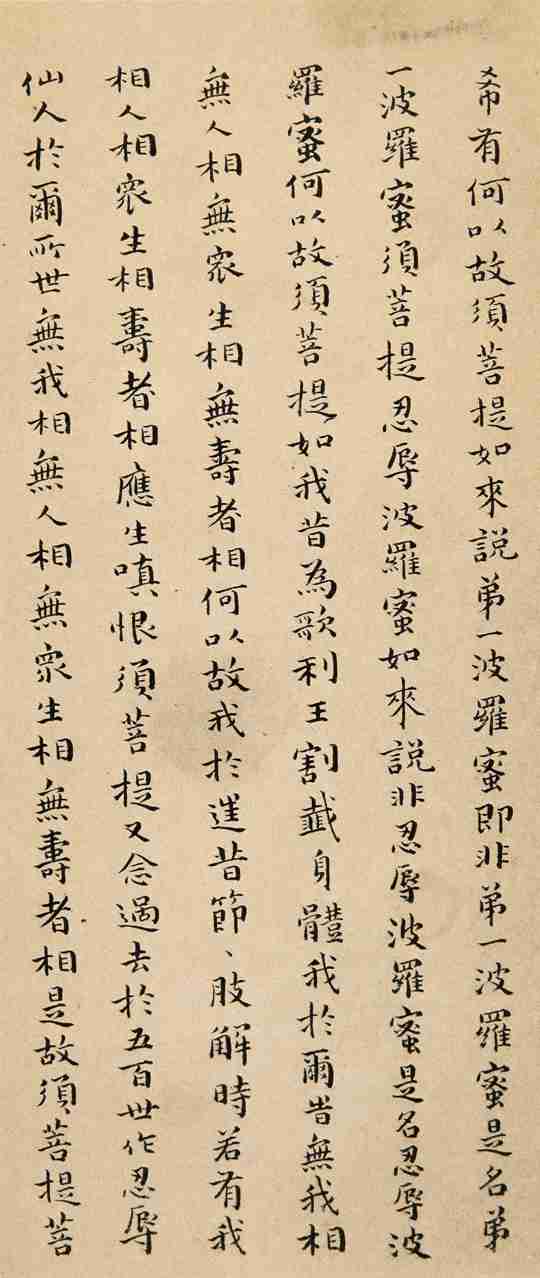 希有何以故須菩提如來說弟一波羅蜜即非弟一波羅蜜是名弟
一波羅蜜須菩提忍辱波羅蜜如來說非忍辱波羅蜜是名忍辱波
羅蜜何以故須菩提如我昔為歌利王割截身體我於爾時無我相
無人相無衆生相無壽者相何以故我於往昔節、肢解時若有我
相人相衆生相壽者相應生嗔恨須菩提又念過去於五百世作忍辱
仙人於爾所世無我相無人相無衆生相無壽者相是故須菩提菩